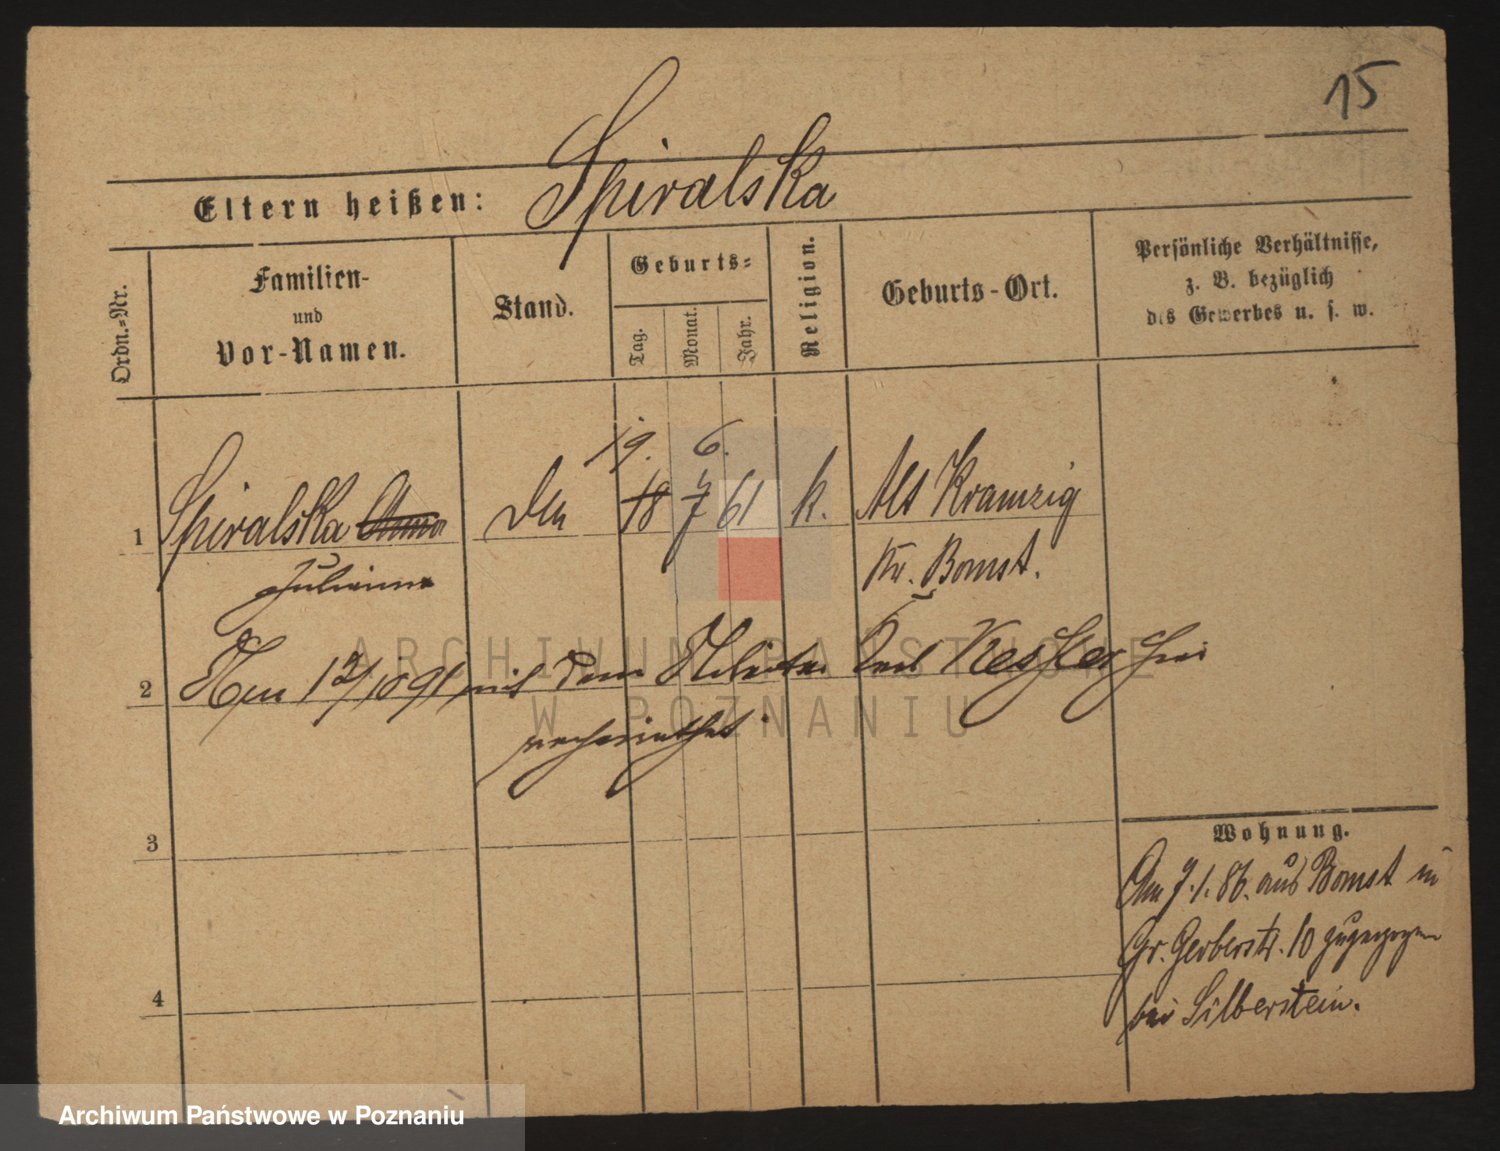 15
Eltern heißen: Spiralska
Ordn.-Nr.
Familien-
und
Vor-Namen.
Stand.
Geburts-
Tag.
Monat.
Jahr.
Religion.
Geburts-Ort.
Persönliche Verhältnisse,
z. B. bezüglich
des Gewerbes u. s. w.
19. 6.
1 Spiralska Anna 18 7 61 k. Alt Kramzig
Julianna Kr. Bomst.
2 mit dem Carl Kessler hier
verheirathet
3
4
Wohnung.
Am 7.1.86. aus Bomst in
Gr. Gerberstr. 10 zugezogen
bei Silberstein.
ARCHIWUM PAŃSTWOWE
W POZNANIU
Archiwum Państwowe w Poznaniu